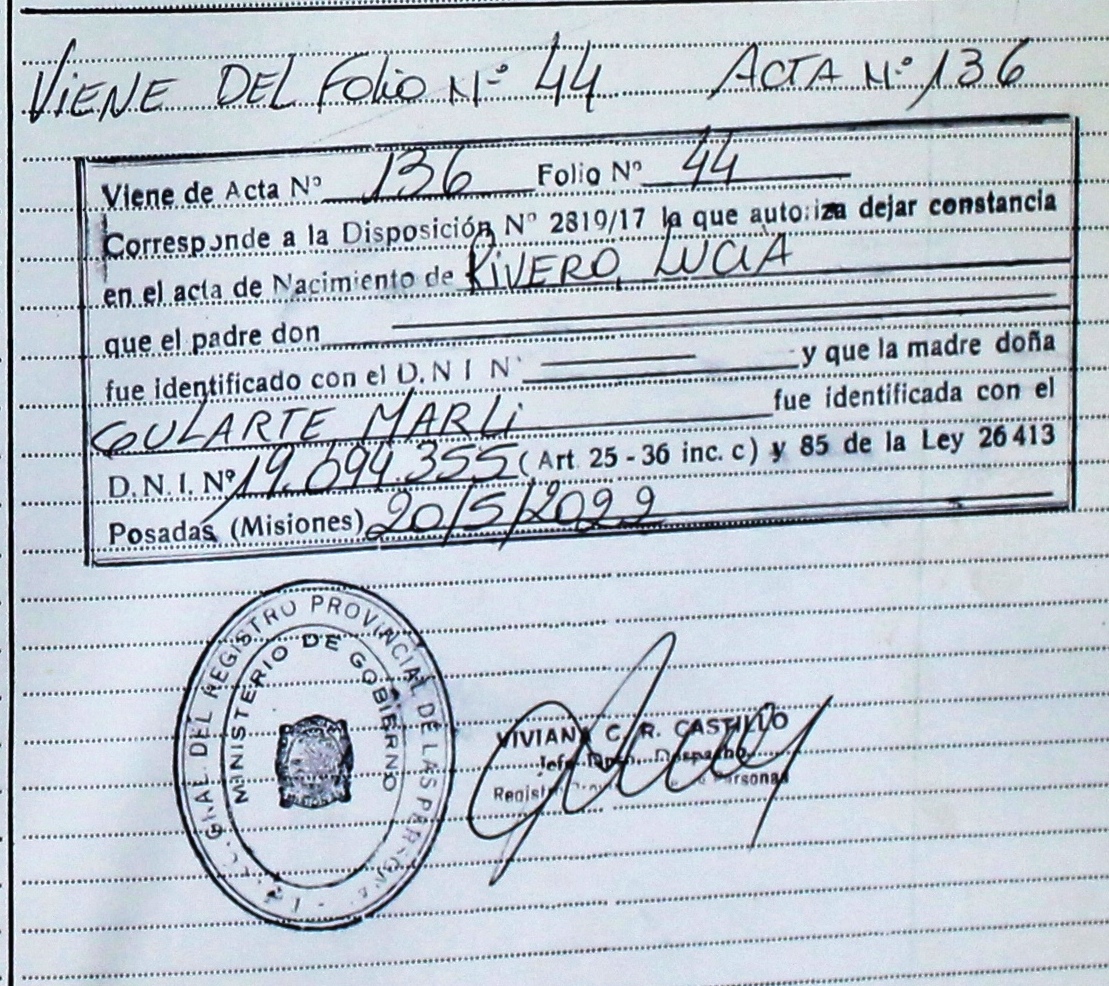 VIENE DEL FOLIO Nº 44 ACTA Nº 136
Viene de Acta Nº 136 Folio Nº 44
Corresponde a la Disposición Nº 2819/17 la que autoriza dejar constancia
en el acta de Nacimiento de RIVERO, LUCIA
que el padre don
fue identificado con el D.N I N° y que la madre doña
GULARTE, MARLI fue identificada con el
D.N.I. Nº 19.694.355 (Art. 25 - 36 inc. c) y 85 de la Ley 26413
Posadas, (Misiones) 20/5/2022
GRAL. DEL REGISTRO PROVINCIAL DE LAS PERSONAS
MINISTERIO DE GOBIERNO
VIVIANA C. R. CASTILLO
Jefe Dpto. Despacho
Personas